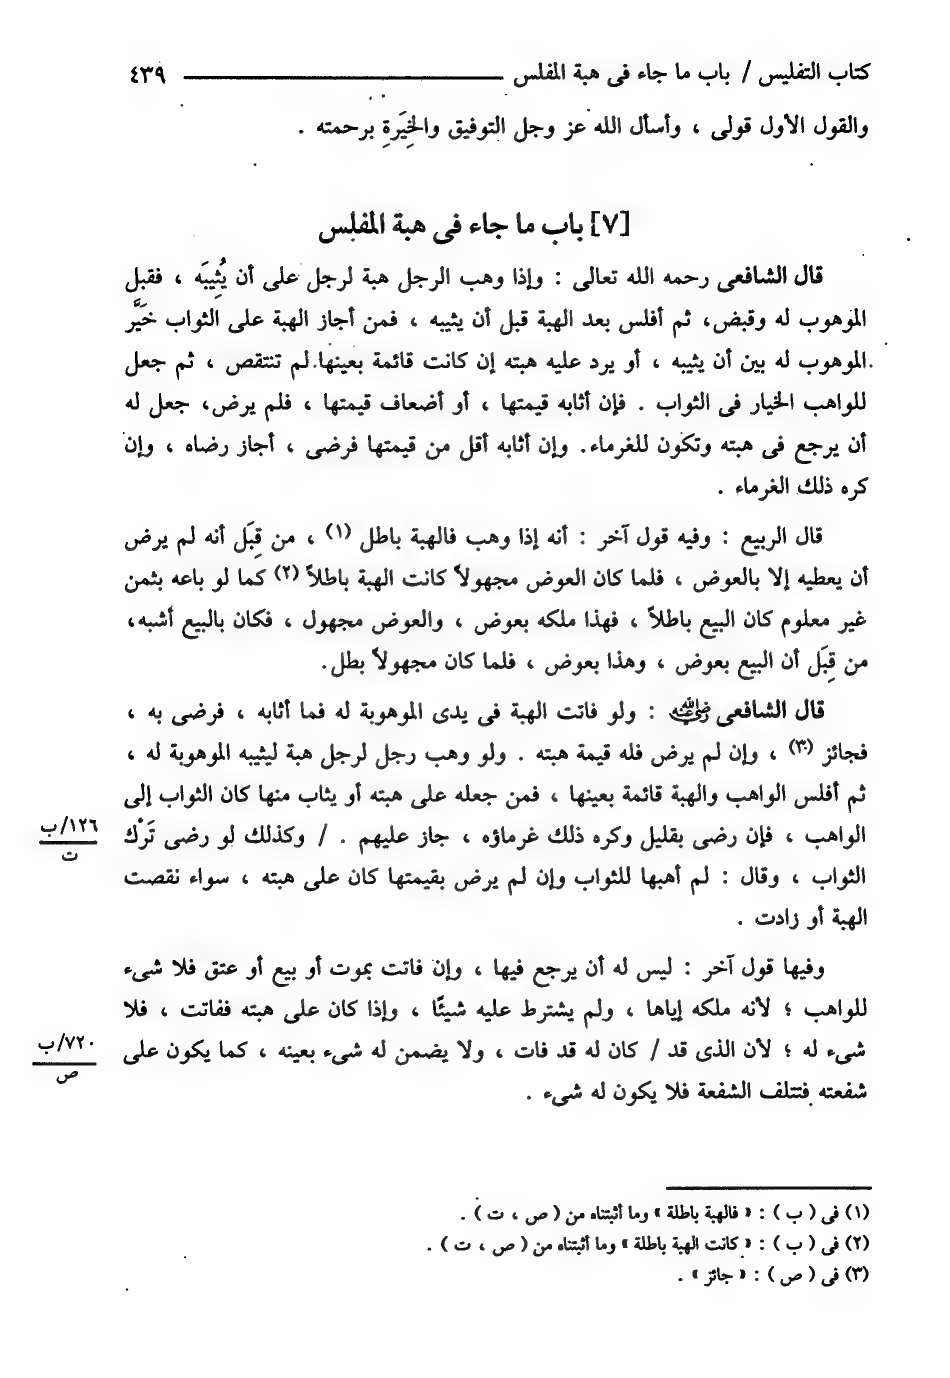 كتاب التفليس / باب ما جاء فى هبة المفلس ٤٣٩
والقول الأول قولى ، وأسأل الله عز وجل التوفيق والخِيَرةِ برحمته .
[٧] باب ما جاء فى هبة المفلس
قال الشافعى رحمه الله تعالى : وإذا وهب الرجل هبة لرجل على أن يُثِيبَه ، فقبل
الموهوب له وقبض، ثم أفلس بعد الهبة قبل أن يثيبه ، فمن أجاز الهبة على الثواب خَيَّر
الموهوب له بين أن يثيبه ، أو يرد عليه هبته إن كانت قائمة بعينها لم تنتقص ، ثم جعل
للواهب الخيار فى الثواب . فإن أثابه قيمتها ، أو أضعاف قيمتها ، فلم يرض، جعل له
أن يرجع فى هبته وتكون للغرماء. وإن أثابه أقل من قيمتها فرضى ، أجاز رضاه ، وإن
كره ذلك الغرماء .
قال الربيع : وفيه قول آخر : أنه إذا وهب فالهبة باطل (١) ، من قِبَل أنه لم يرض
أن يعطيه إلا بالعوض ، فلما كان العوض مجهولاً كانت الهبة باطلاً (٢) كما لو باعه بثمن
غير معلوم كان البيع باطلاً ، فهذا ملكه بعوض ، والعوض مجهول ، فكان بالبيع أشبه،
من قِبَل أن البيع بعوض ، وهذا بعوض ، فلما كان مجهولاً بطل.
قال الشافعى رضي الله عنه : ولو فاتت الهبة فى يدى الموهوبة له فما أثابه ، فرضى به ،
فجائز (٣) ، وإن لم يرض فله قيمة هبته . ولو وهب رجل لرجل هبة ليثيبه الموهوبة له ،
ثم أفلس الواهب والهبة قائمة بعينها ، فمن جعله على هبته أو يثاب منها كان الثواب إلى
الواهب ، فإن رضى بقليل وكره ذلك غرماؤه ، جاز عليهم . / وكذلك لو رضى تَرْك
١٢٦/ب
ت
الثواب ، وقال : لم أهبها للثواب وإن لم يرض بقيمتها كان على هبته ، سواء نقصت
الهبة أو زادت .
وفيها قول آخر : ليس له أن يرجع فيها ، وإن فاتت بموت أو بيع أو عتق فلا شىء
للواهب ؛ لأنه ملكه إياها ، ولم يشترط عليه شيئًا ، وإذا كان على هبته ففاتت ، فلا
شىء له ؛ لأن الذى قد / كان له قد فات ، ولا يضمن له شىء بعينه ، كما يكون على
٧٢٠/ب
ص
شفعته فتتلف الشفعة فلا يكون له شىء .
(١) فى ( ب ) : « فالهبة باطلة » وما أثبتناه من ( ص ، ت ) .
(٢) فى ( ب ) : « كانت الهبة باطلة » وما أثبتناه من ( ص ، ت ) .
(٣) فى ( ص ) : « جائز » .